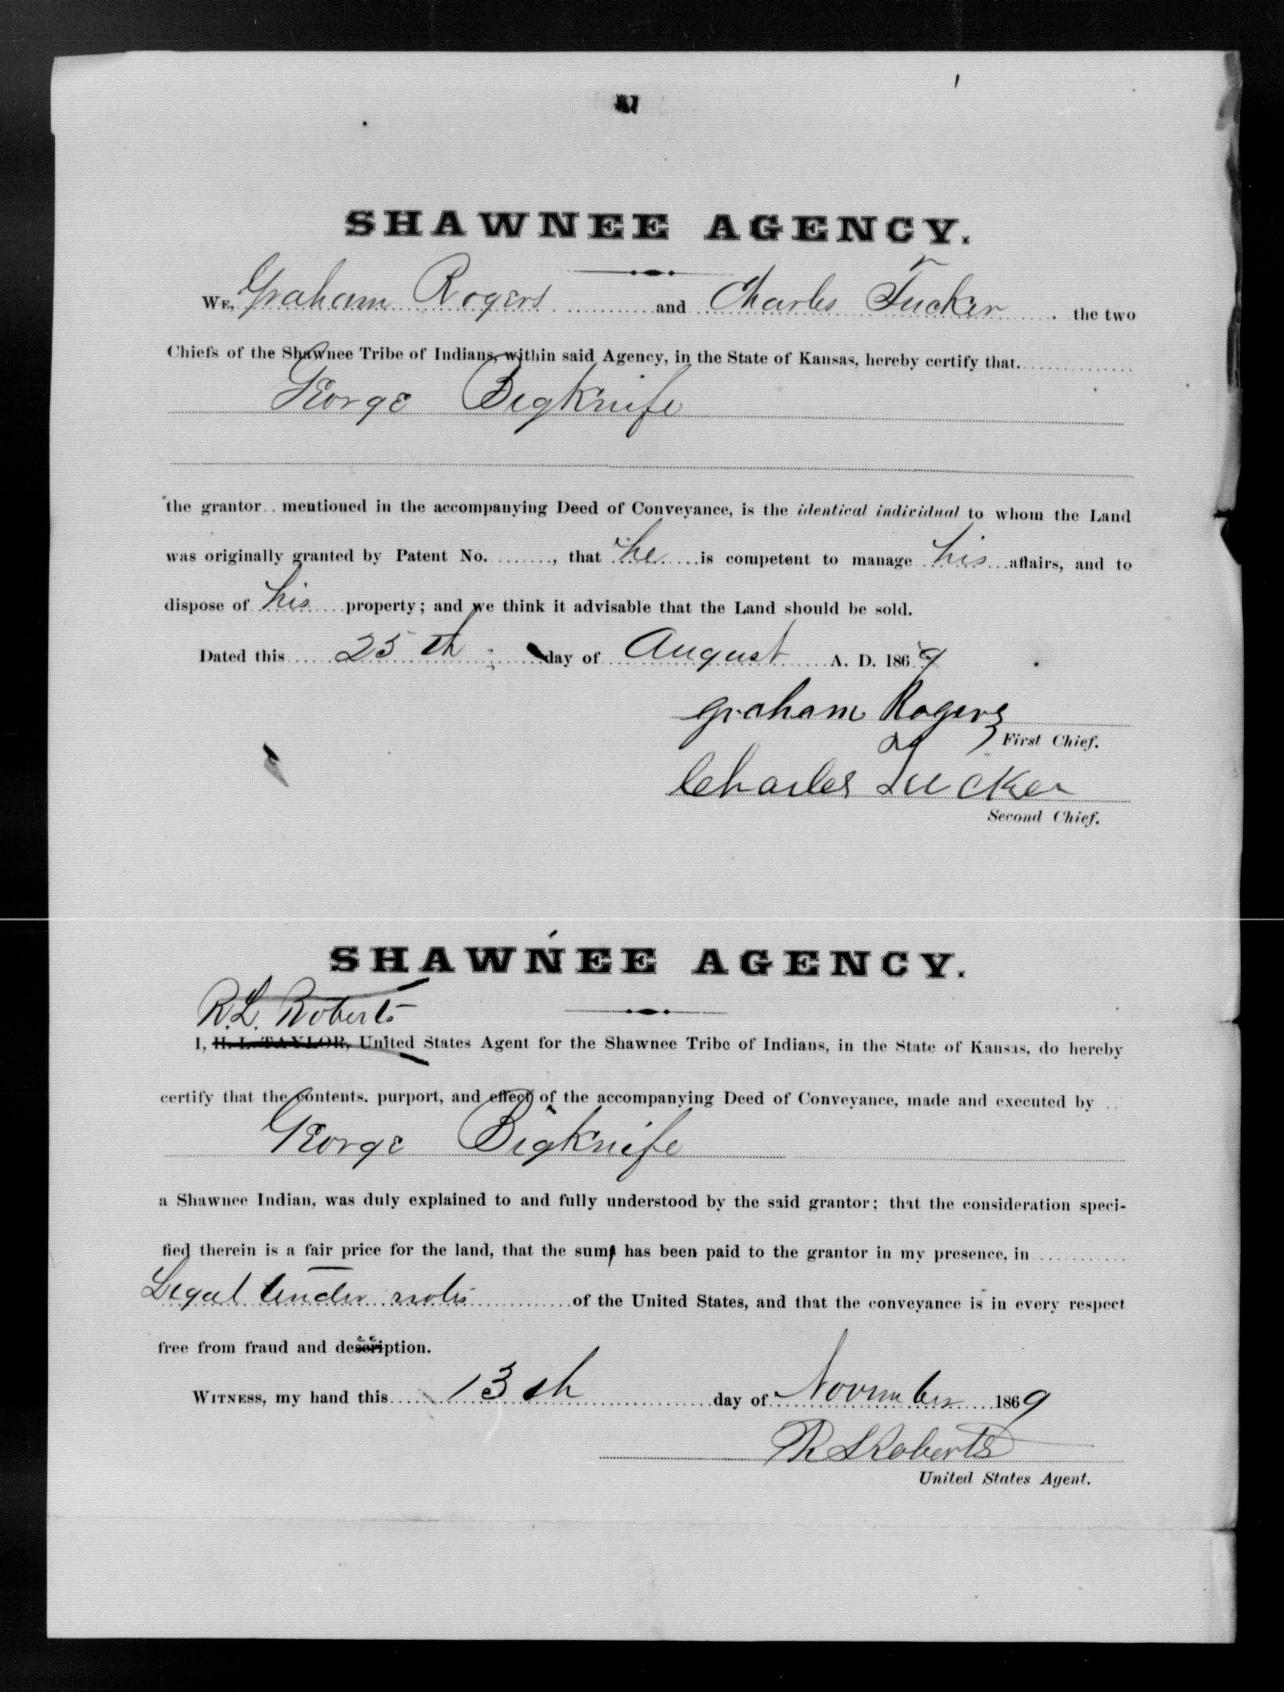 SHAWNEE AGENCY.
WE, Graham Rogers and Charles Tucker the two
Chiefs of the Shawnee Tribe of Indians, within said Agency, in the State of Kansas, hereby certify that
George Bigknife
the grantor mentioned in the accompanying Deed of Conveyance, is the identical individual to whom the Land
was originally granted by Patent No. ......., that he is competent to manage his affairs, and to
dispose of his property; and we think it advisable that the Land should be sold.
Dated this 25th day of August A. D. 1869
Graham Rogers
First Chief.
Charles Tucker
Second Chief.
SHAWNEE AGENCY.
R. L. Roberts
I, H. L. TAYLOR, United States Agent for the Shawnee Tribe of Indians, in the State of Kansas, do hereby
certify that the contents, purport, and effect of the accompanying Deed of Conveyance, made and executed by
George Bigknife
a Shawnee Indian, was duly explained to and fully understood by the said grantor; that the consideration speci-
fied therein is a fair price for the land, that the sum has been paid to the grantor in my presence, in
Legal tender notes of the United States, and that the conveyance is in every respect
free from fraud and description.
WITNESS, my hand this 13th day of November 1869
R L Roberts
United States Agent.